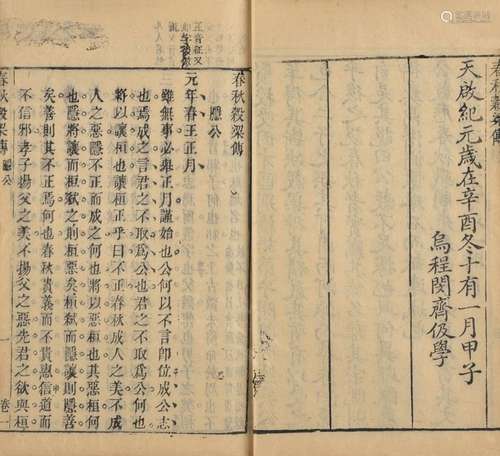 天啟紀元歲在辛酉冬十有一月甲子
烏程閔齊伋學
春秋穀梁傳
隱公
元年春王正月
正音征又
雖無事必舉正月謹始也公何以不言卽位成公志
也焉成之言君之不取爲公也君之不取爲公何也
將以讓桓也讓桓正乎曰不正春秋成人之美不成
人之惡隱不正而成之何也將以惡桓也其惡桓何
也隱將讓而桓弑之則桓惡矣桓弑而隱讓則隱善
矣善則其不正焉何也春秋貴義而不貴惠信道而
不信邪孝子揚父之美不揚父之惡先君之欲與桓
春秋穀梁傳 隱公 卷一